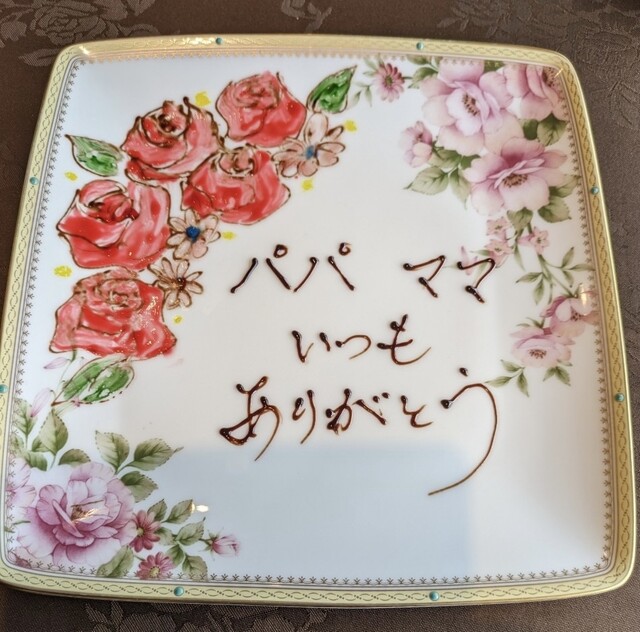 パパ ママ
いつも
ありがとう